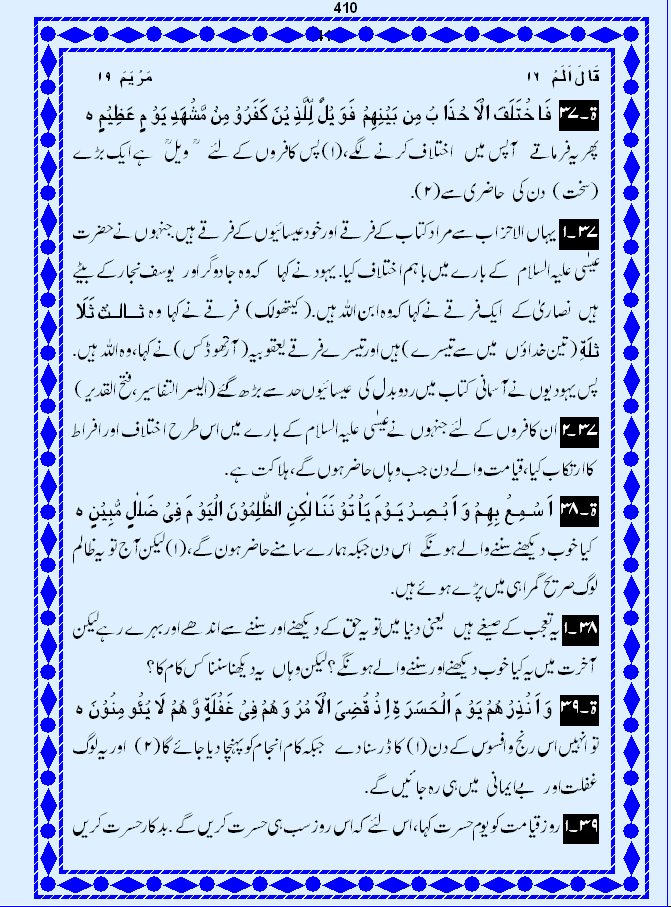 410
قَالَ اَلَمْ ١٦ مَرْيَمْ ١٩
ة۔٣٧ فَاخْتَلَفَ الْاَحْذَابُ مِن بَيْنِهِمْ فَوَيْلٌ لِّلَّذِيْنَ كَفَرُوْ مِنْ مَّشْهَدِ يَوْمٍ عَظِيْمٍ ه
پھر یہ فرماتے آپس میں اختلاف کرنے لگے،(١) پس کافروں کے لئے ”ویل“ ہے ایک بڑے
(سخت) دن کی حاضری سے (٢).
٣٧۔١ یہاں الاحزاب سے مراد کتاب کے فرقے اور خود عیسائیوں کے فرقے ہیں. جنہوں نے حضرت
عیسٰی علیہ السلام کے بارے میں باہم اختلاف کیا. یہود نے کہا کہ وہ جادوگر اور یوسف نجار کے بیٹے
ہیں نصاریٰ کے ایک فرقے نے کہا کہ وہ ابن اللہ ہیں.(کیتھولک) فرقے نے کہا وہ ثَالِثُ ثَلَا
ثَلَةِ (تین خداؤں میں سے تیسرے) ہیں اور تیسرے فرقے یعقوبیہ (آرتھوڈکس) نے کہا، وہ اللہ ہیں.
پس یہودیوں نے آسانی کتاب میں ردوبدل کی عیسائیوں حد سے بڑھ گئے (الیسر التفاسیر، فتح القدیر)
٣٧۔٢ ان کافروں کے لئے جنہوں نے عیسٰی علیہ السلام کے بارے میں اس طرح اختلاف اور افراط
کا ارتکاب کیا، قیامت والے دن جب وہاں حاضر ہوں گے، ہلاکت ہے.
ة۔٣٨ اَسْمِعْ بِهِمْ وَاَبْصِرْ يَوْمَ يَاْتُوْنَنَا لٰكِنِ الظّٰلِمُوْنَ الْيَوْمَ فِىْ ضَلٰلٍ مُّبِيْنٍ ه
کیا خوب دیکھنے سننے والے ہونگے اس دن جبکہ ہمارے سامنے حاضر ہون گے،(١) لیکن آج تو یہ ظالم
لوگ صریح گمراہی میں پڑے ہوئے ہیں.
٣٨۔١ یہ تعجب کے صیغے ہیں یعنی دنیا میں تو یہ حق کے دیکھنے اور سننے سے اندھے اور بہرے رہے لیکن
آخرت میں یہ کیا خوب دیکھنے اور سننے والے ہونگے؟ لیکن وہاں یہ دیکھنا سننا کس کام کا؟
ة۔٣٩ وَاَنْذِرْهُمْ يَوْمَ الْحَسَرَةِ اِذْ قُضِىَ الْاَمْرُ وَهُمْ فِىْ غَفْلَةٍ وَّ هُمْ لَا يُئُومِنُوْنَ ه
تو انہیں اس رنج و افسوس کے دن (١) کا ڈر سنا دے جبکہ کام انجام کو پہنچا دیا جائے گا (٢) اور یہ لوگ
غفلت اور بے ایمانی میں ہی رہ جائیں گے.
٣٩۔١ روز قیامت کو یوم حسرت کہا، اس لئے کہ اس روز سب ہی حسرت کریں گے. بدکار حسرت کریں